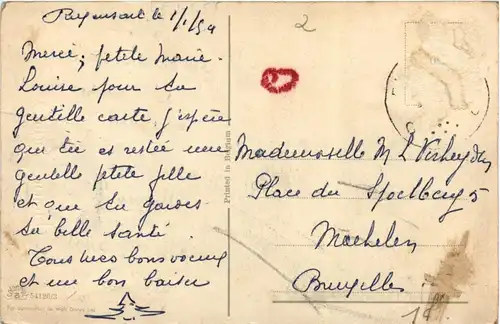 le 1/1/54
2
Merci, petite Marie
Louise pour ta
gentille carte, j'espère
que tu es restée une
gentille petite fille
et que tu gardes
ta belle santé.
Tous mes bons voeux
et un bon baiser
Mademoiselle M L
Place du Spoelberg 5
Machelen
Bruxelles
Printed in Belgium